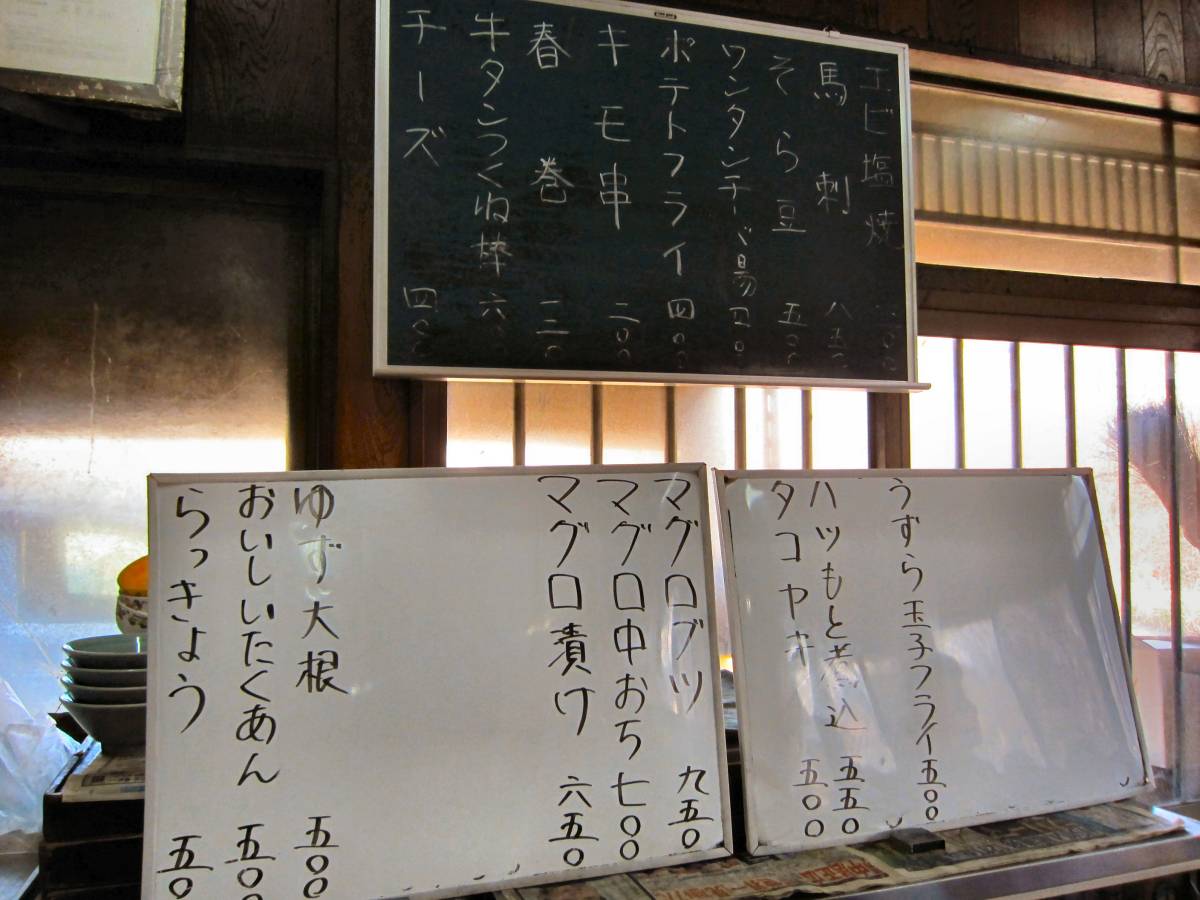 エビ塩焼
馬刺 八五〇
そら豆 五〇〇
ワンタンチーズ揚 四〇〇
ポテトフライ 四〇〇
キモ串 二〇〇
春巻 三三〇
牛タンつくね棒 六
チーズ 四〇〇
うずら玉子フライ 五〇〇
ハツもと煮込 五五〇
タコヤキ 五〇〇
マグロブツ 九五〇
マグロ中おち 七〇〇
マグロ漬け 六五〇
ゆず大根 五〇〇
おいしいたくあん 五〇〇
らっきょう 五〇